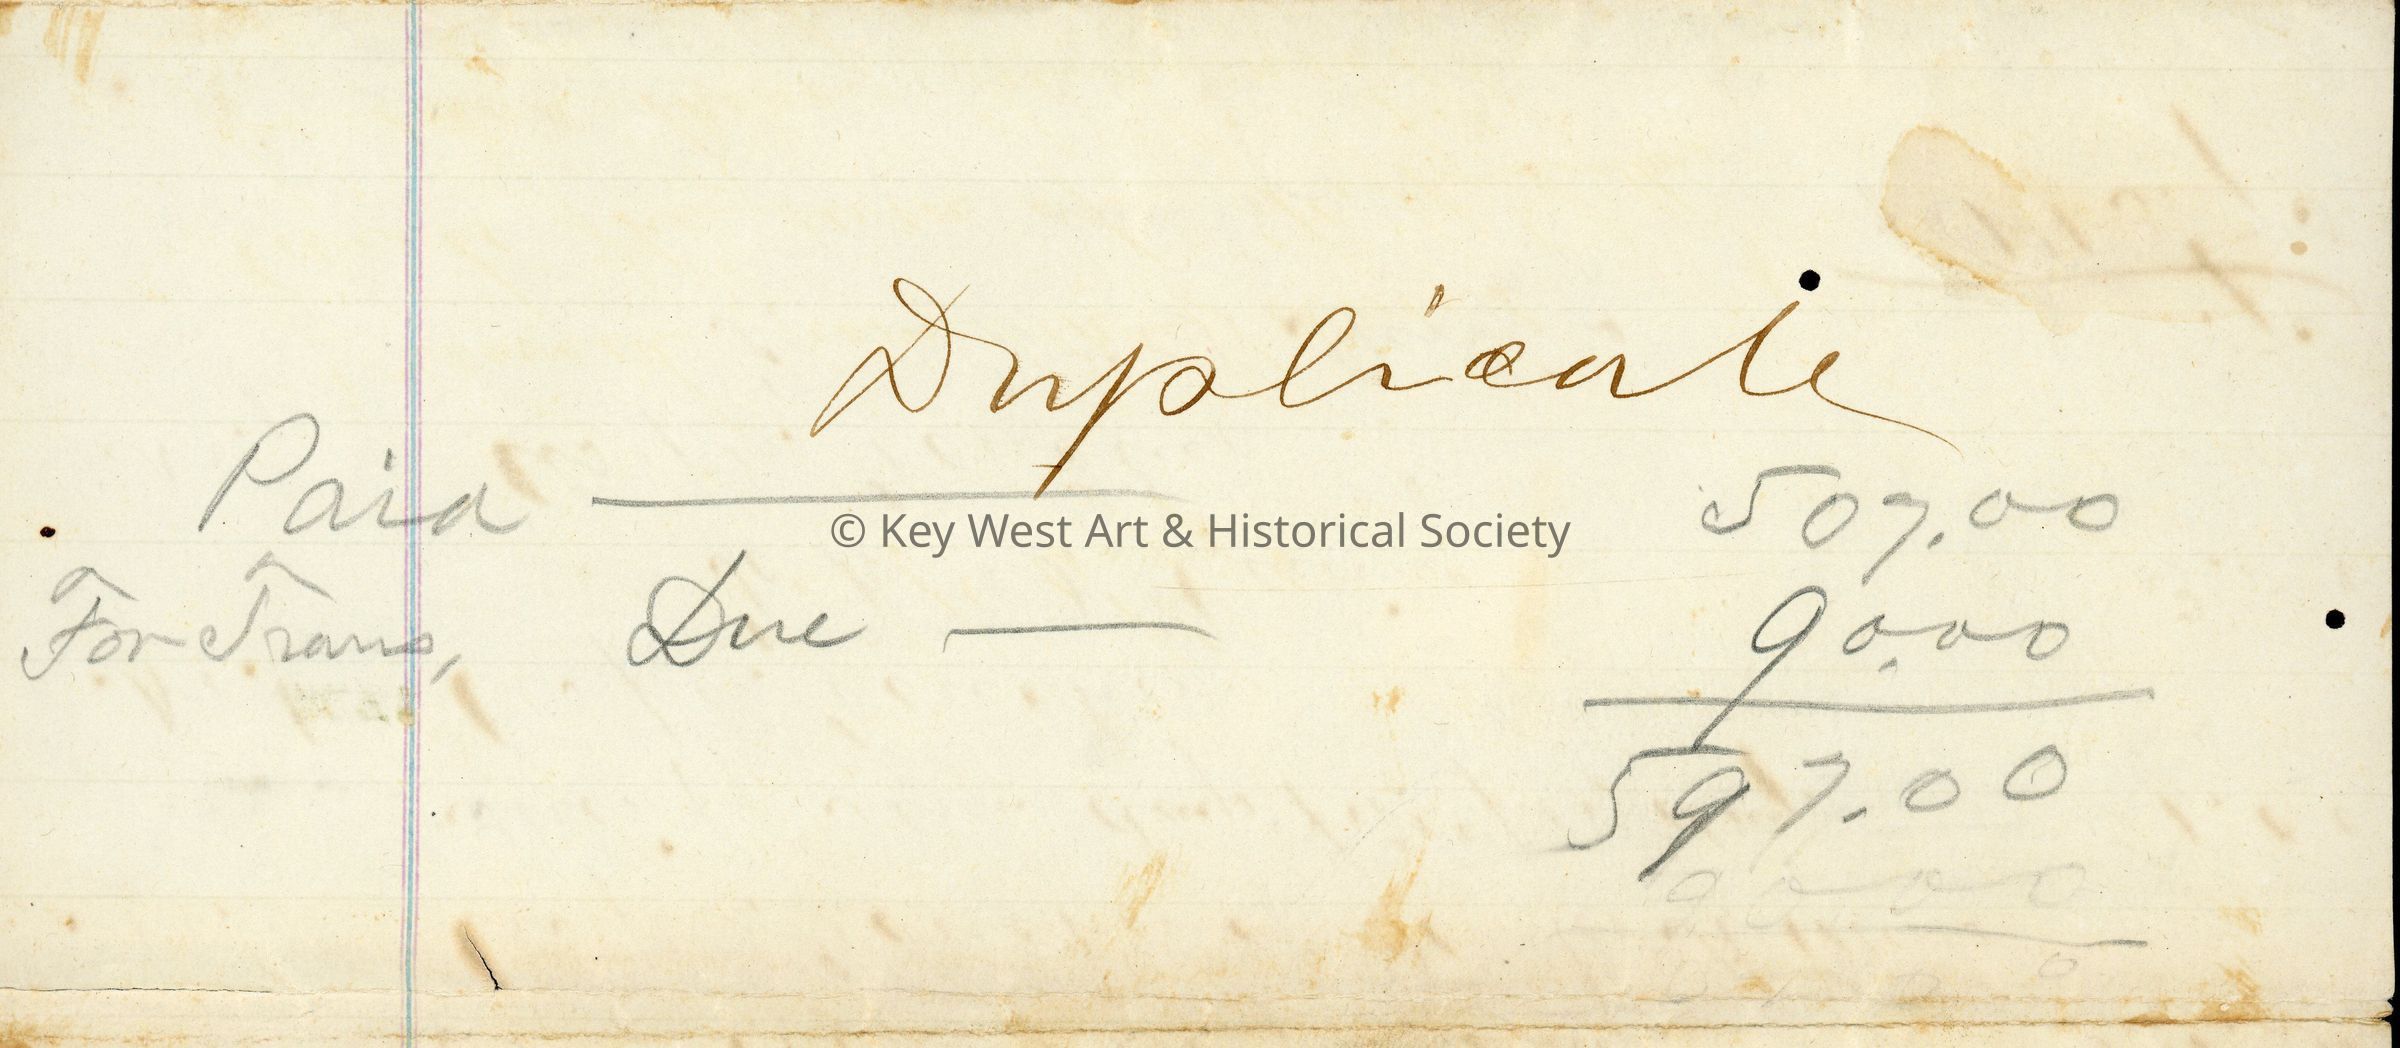 Duplicate
Paid — 507.00
© Key West Art & Historical Society
For Trans, Due — 90.00
597.00